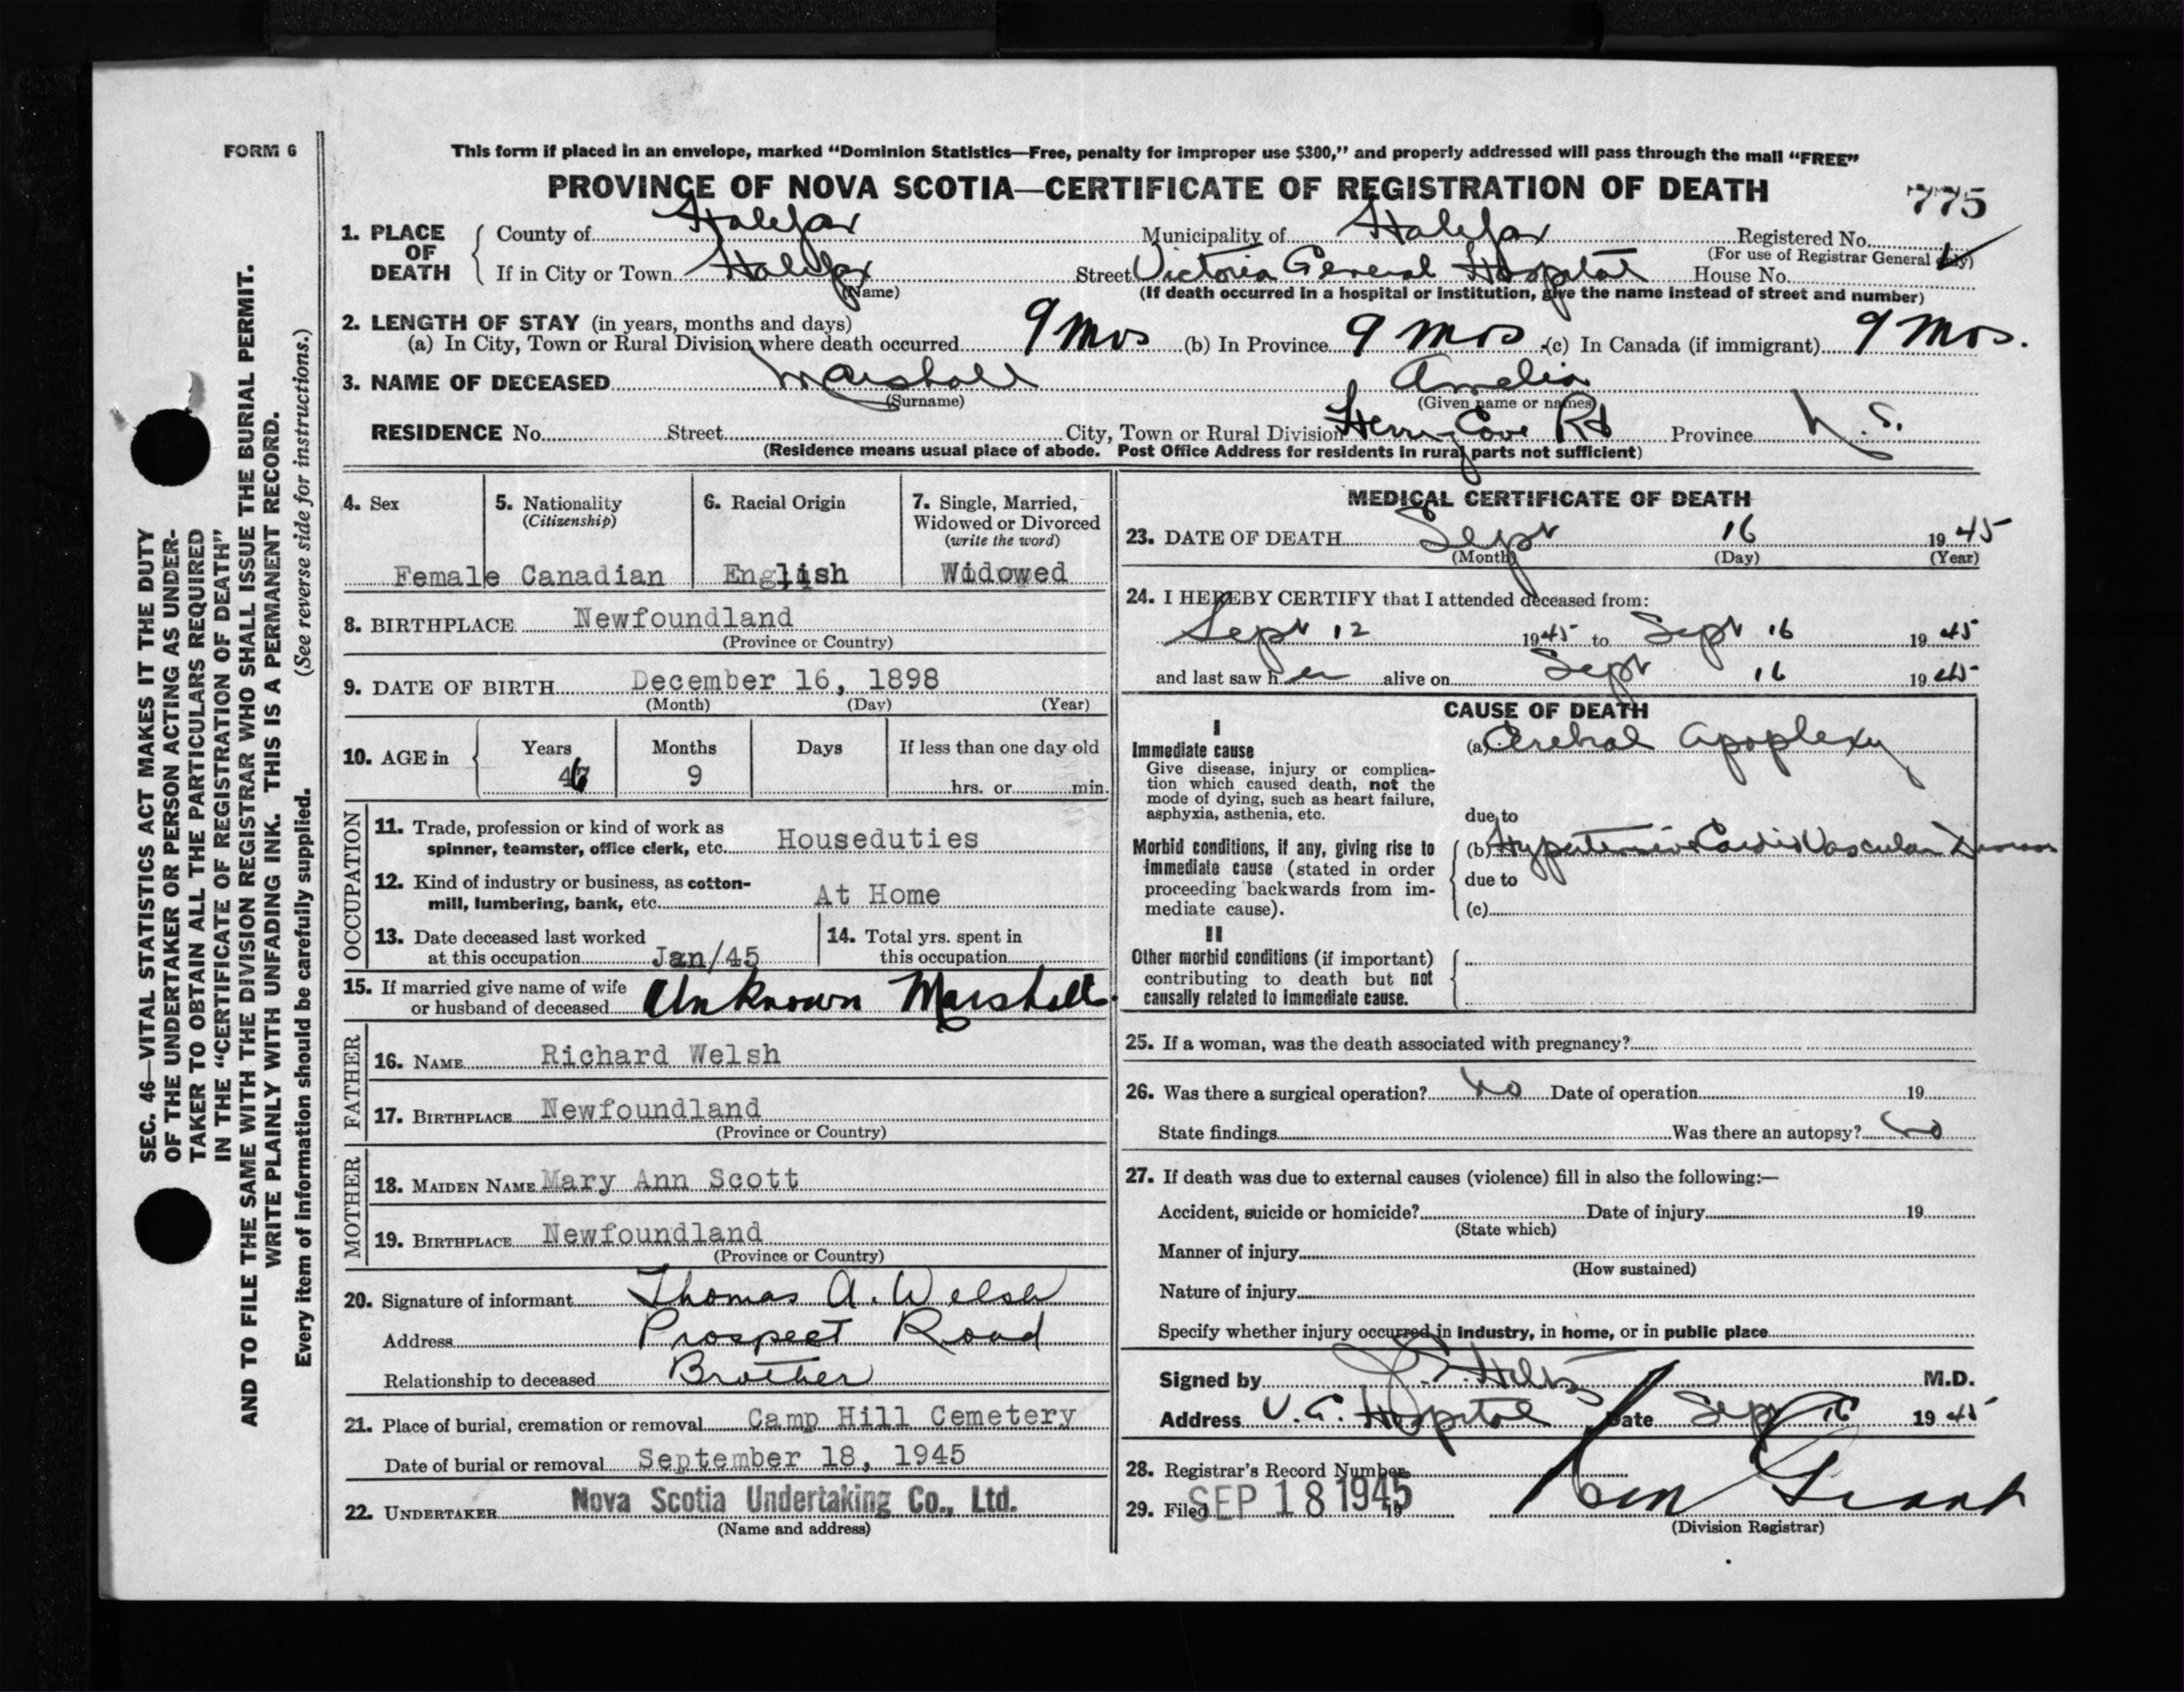 FORM 6
This form if placed in an envelope, marked “Dominion Statistics—Free, penalty for improper use $300,” and properly addressed will pass through the mail “FREE”
PROVINCE OF NOVA SCOTIA—CERTIFICATE OF REGISTRATION OF DEATH
775
1. PLACE OF DEATH
County of Halifax Municipality of Halifax Registered No.
(For use of Registrar General only)
If in City or Town Halifax Street Victoria General Hospital House No.
(Name) (If death occurred in a hospital or institution, give the name instead of street and number)
2. LENGTH OF STAY (in years, months and days)
(a) In City, Town or Rural Division where death occurred 9 mos (b) In Province 9 mos (c) In Canada (if immigrant) 9 mos.
3. NAME OF DECEASED Marshall Amelia
(Surname) (Given name or names)
RESIDENCE No. Street City, Town or Rural Division Cove Rd Province N.S.
(Residence means usual place of abode. Post Office Address for residents in rural parts not sufficient)
4. Sex Female
5. Nationality (Citizenship) Canadian
6. Racial Origin English
7. Single, Married, Widowed or Divorced (write the word) Widowed
8. BIRTHPLACE Newfoundland
(Province or Country)
9. DATE OF BIRTH December 16, 1898
(Month) (Day) (Year)
10. AGE in Years 46 Months 9 Days If less than one day old
hrs. or min.
OCCUPATION
11. Trade, profession or kind of work as
spinner, teamster, office clerk, etc. Houseduties
12. Kind of industry or business, as cotton-
mill, lumbering, bank, etc. At Home
13. Date deceased last worked
at this occupation Jan/45
14. Total yrs. spent in
this occupation
15. If married give name of wife
or husband of deceased Unknown Marshall.
FATHER
16. NAME Richard Welsh
17. BIRTHPLACE Newfoundland
(Province or Country)
MOTHER
18. MAIDEN NAME Mary Ann Scott
19. BIRTHPLACE Newfoundland
(Province or Country)
20. Signature of informant Thomas A. Welsh
Address Prospect Road
Relationship to deceased Brother
21. Place of burial, cremation or removal Camp Hill Cemetery
Date of burial or removal September 18, 1945
22. UNDERTAKER Nova Scotia Undertaking Co., Ltd.
(Name and address)
MEDICAL CERTIFICATE OF DEATH
23. DATE OF DEATH Sept 16 1945
(Month) (Day) (Year)
24. I HEREBY CERTIFY that I attended deceased from:
Sept 12 1945 to Sept 16 1945
and last saw her alive on Sept 16 1945
CAUSE OF DEATH
I
Immediate cause
Give disease, injury or complica-
tion which caused death, not the
mode of dying, such as heart failure,
asphyxia, asthenia, etc.
(a) Cerebral Apoplexy
due to
Morbid conditions, if any, giving rise to
immediate cause (stated in order
proceeding backwards from im-
mediate cause).
(b) Hypertensive Cardio Vascular Disease
due to
(c)
II
Other morbid conditions (if important)
contributing to death but not
causally related to immediate cause.
25. If a woman, was the death associated with pregnancy?
26. Was there a surgical operation? No Date of operation 19
State findings Was there an autopsy? No
27. If death was due to external causes (violence) fill in also the following:—
Accident, suicide or homicide? Date of injury 19
(State which)
Manner of injury
(How sustained)
Nature of injury
Specify whether injury occurred in Industry, in home, or in public place
Signed by M.D.
Address V.G. Hospital Date Sept 16 1945
28. Registrar's Record Number
29. Filed SEP 18 1945 19
Grant
(Division Registrar)
SEC. 46—VITAL STATISTICS ACT MAKES IT THE DUTY
OF THE UNDERTAKER OR PERSON ACTING AS UNDER-
TAKER TO OBTAIN ALL THE PARTICULARS REQUIRED
IN THE “CERTIFICATE OF REGISTRATION OF DEATH”
AND TO FILE THE SAME WITH THE DIVISION REGISTRAR WHO SHALL ISSUE THE BURIAL PERMIT.
WRITE PLAINLY WITH UNFADING INK. THIS IS A PERMANENT RECORD.
Every item of information should be carefully supplied. (See reverse side for instructions.)